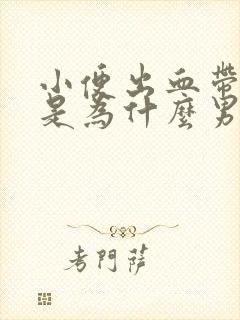 小便出血帶
是為什麼男
考門薩